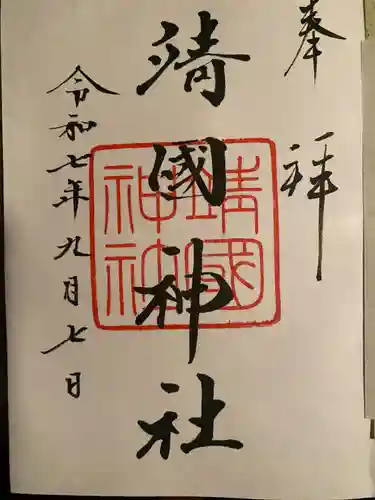 奉拝
靖國神社
靖國神社
令和七年九月七日